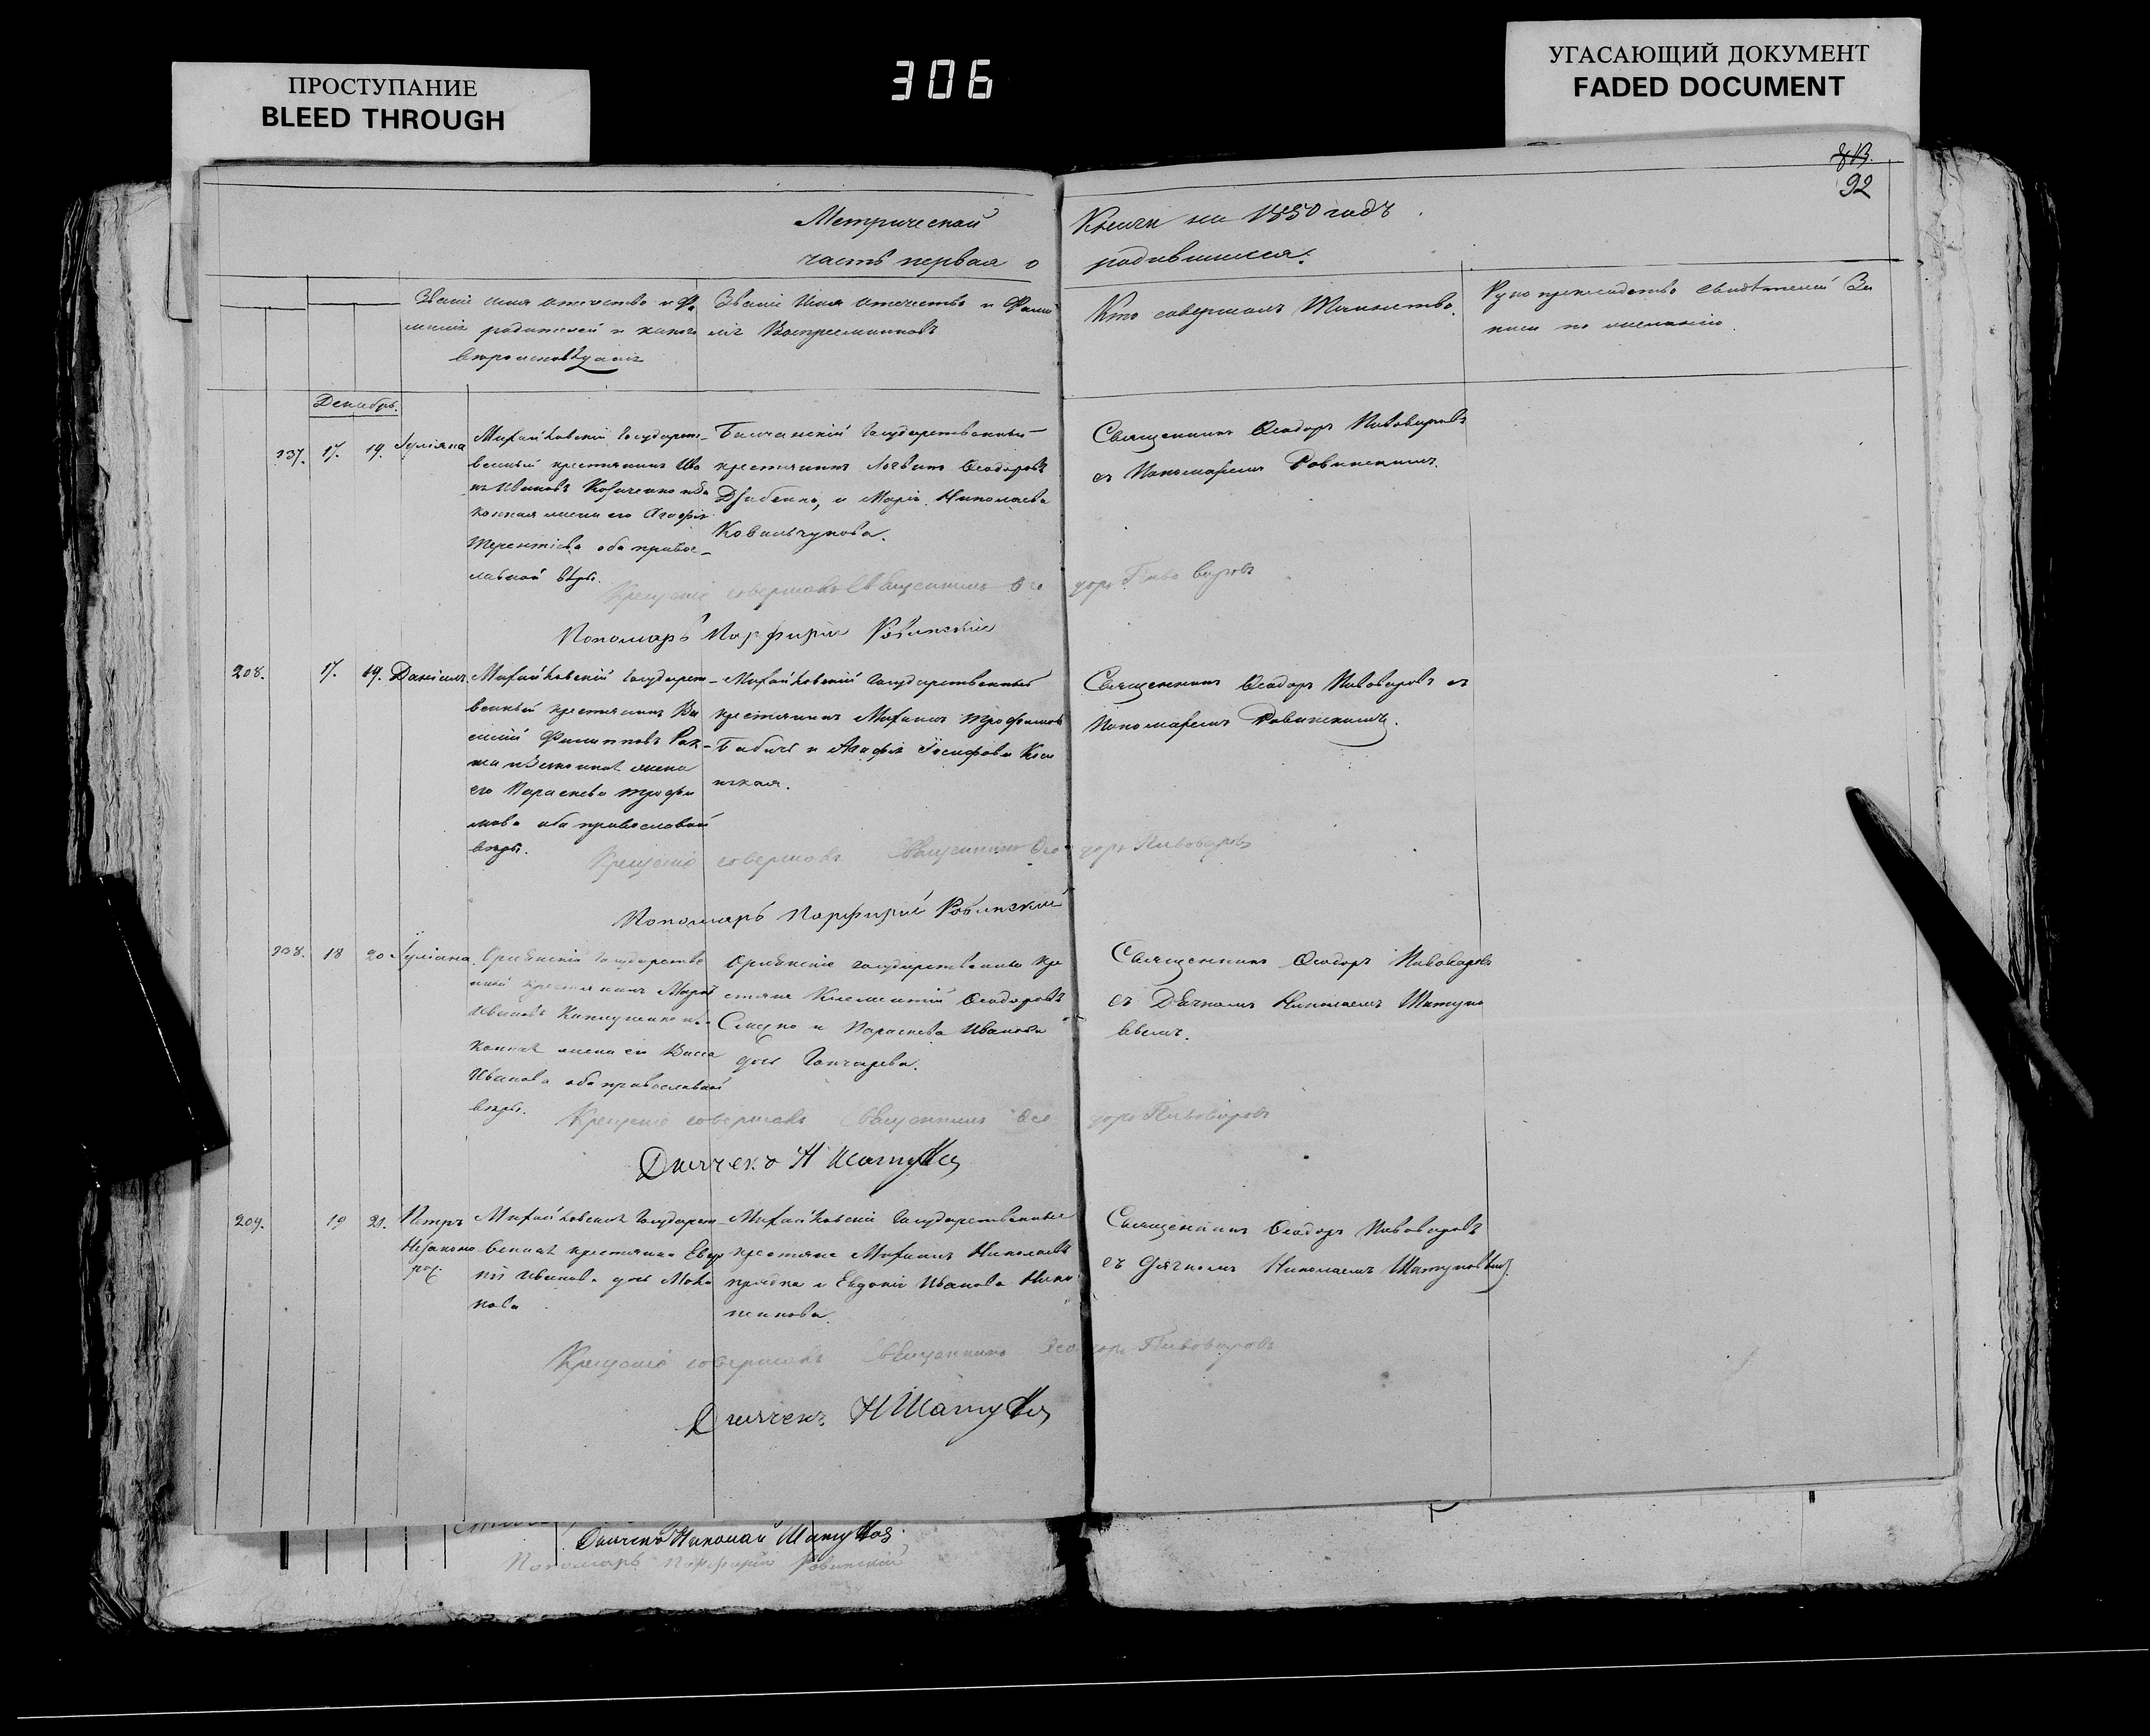 ПРОСТУПАНИЕ
BLEED THROUGH
306
УГАСАЮЩИЙ ДОКУМЕНТ
FADED DOCUMENT
92
Метрической
часть первая о
Книги на 1850 годъ
родившихся.
Званіе имя отечество и Фа
миліе родителей и какого
вѣроисповѣданія
Званіе Имя отечество и Фами
ліе Воспреемниковъ
Кто совершалъ Таинство.
Рукоприкладство свидѣтелей За
писи по желанію.
Декабрь.
237. 17. 19. Іуліяна
Михайловскій Государст-
венный крестьянинъ Ива
нъ Ивановъ Козаченко и За
конная жена его Агафія
Терентіева оба правос-
лавной вѣры.
государственный
крестьянинъ Логвинъ Ѳеодоровъ
Дзюбенко, и Марія Николаева
Ковальчукова.
Священникъ Ѳеодоръ Пивоваровъ
съ Пономаремъ Ровинскимъ.
Крещеніе совершалъ Священникъ Ѳео
доръ Пивоваровъ
Пономарь Порфирій Ровинскій
208. 17. 19. Даніилъ.
Михайловскій Государст-
венный крестьянинъ Ва
силій Филипповъ
и Законная жена
его Параскева Трофи
мова оба православной
вѣры.
Михайловскій Государственный
крестьянинъ Михаилъ Трофимовъ
Бабичъ и Агафія Іосифова
Священникъ Ѳеодоръ Пивоваровъ съ
Пономаремъ Ровинскимъ.
Крещеніе совершалъ Священникъ Ѳео
доръ Пивоваровъ
Пономарь Порфирій Ровинскій
238. 18 20 Іуліана.
Орлянскій Государстве
ный крестьянинъ
Ивановъ и за
конная жена его Васса
Иванова оба православной
вѣры.
Орлянскіе государственные кре
стьяне Климентій Ѳеодоровъ
и Параскева Иванова
дочь Гончарева.
Священникъ Ѳеодоръ Пивоваровъ
съ Дьячкомъ Николаемъ Шатуно
вымъ.
Крещеніе совершалъ Священникъ Ѳео
доръ Пивоваровъ
Дьячекъ Н
209. 19 21. Петръ
Незаконо
рож.
Михайловская Государст-
венная крестьянка Евдо
кія Иванова дочь
Михайловскіе Государственные
крестьяне Михаилъ Николаевъ
и Евдокія Иванова
Священникъ Ѳеодоръ Пивоваровъ
съ Дячкомъ Николаемъ Шатуновымъ.
Крещеніе совершалъ Священникъ Ѳео
доръ Пивоваровъ
Дьячекъ Н
Дьячекъ Николай
Пономарь Порфирій Ровинскій